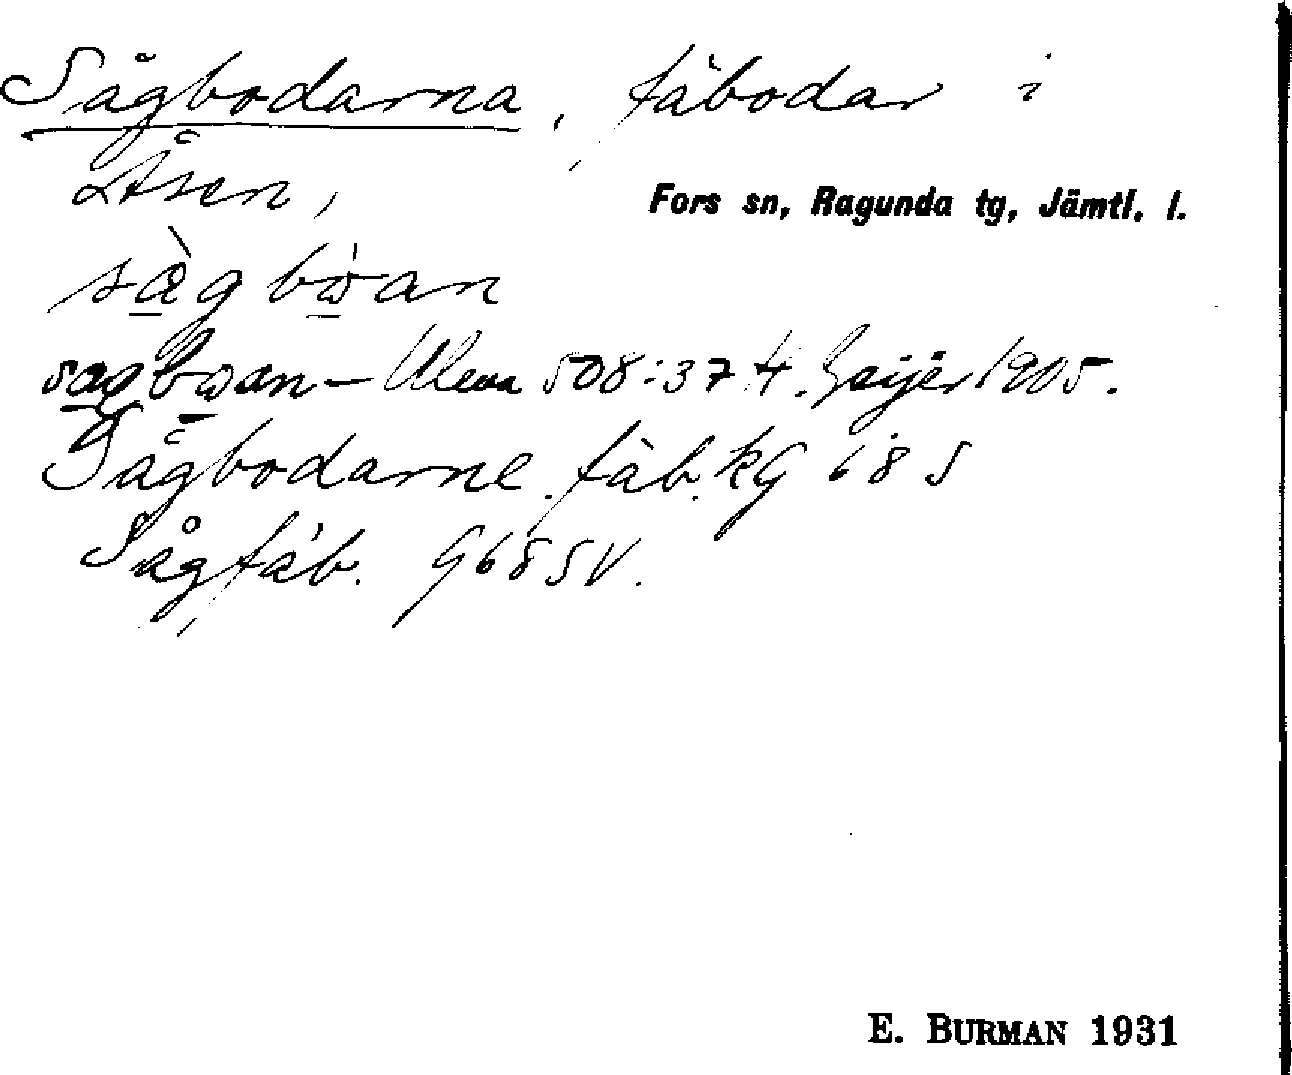 Sågbodarna, fäbodar i
Åsen,
Fors sn, Ragunda tg, Jämtl. l.
sàg bòan
sagboan – Uleva 508:37 H. Geijer 1905.
Sågbodarne fäb. kG 68 S
Sågfäb. G68SV.
E. BURMAN 1931